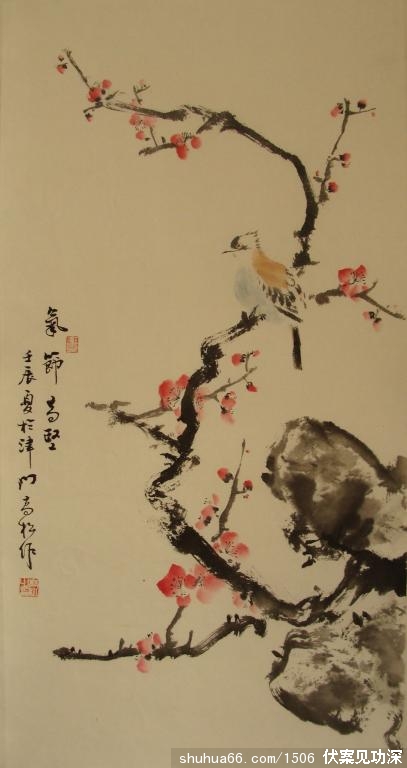 氣節高堅
壬辰夏於津門高松作
shuhua66.com/1506 伏案见功深